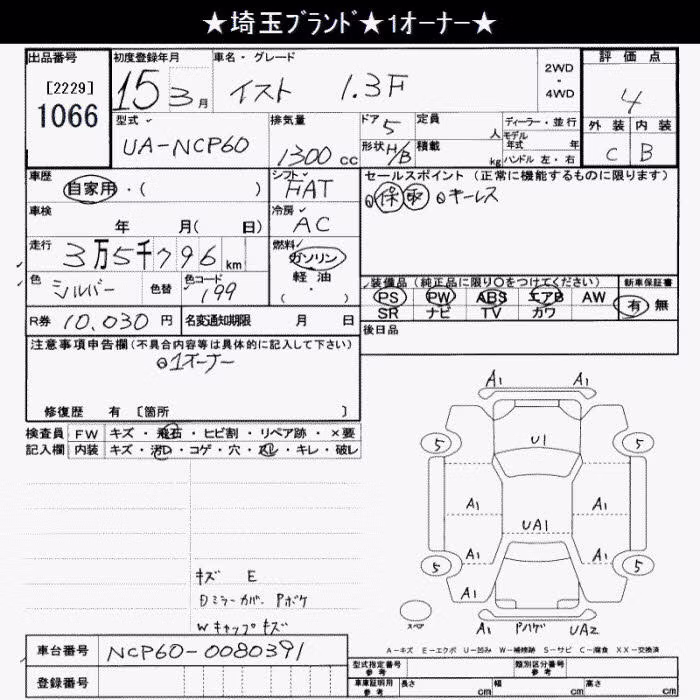 ★埼玉ブランド★1オーナー★
出品番号 初度登録年月 車名・グレード 2WD・4WD 評価点
[2229] 1066 15 3月 イスト 1.3F 4
型式 排気量 ドア 5 定員 人 ディーラー・並行 外装 内装
UA-NCP60 1300cc 形状 H/B 積載 kg モデル年式 年 ハンドル 左・右 C B
車歴 シフト セールスポイント (正常に機能するものに限ります)
自家用・( ) FAT ◎保 取 ◎キーレス
車検 冷房
年 月( 日) AC
走行 3万5千796km 燃料 ガソリン 軽油 ( ・ )
色 シルバー 色替 色コード 199 装備品 (純正品に限り○をつけてください) 新車保証書
PS PW ABS エアB AW 有 無
SR ナビ TV カワ
R券 10,030円 名変通知期限 月 日 後日品
注意事項申告欄(不具合内容等は具体的に記入して下さい)
◎1オーナー
修復歴 有 [箇所 ]
検査員 FW キズ・飛石・ヒビ割・リペア跡・×要
記入欄 内装 キズ・汚れ・コゲ・穴・スレ・キレ・破レ
A1 A1
5 U1 5
A1 A1
UA1
A1 A1
5 5
A1
スペア A1 Pハゲ UA2
キズ E
Dミラーカバー Pボケ
Wキャップキズ
A-キズ E-エクボ U-凹み W-補修跡 S-サビ C-腐食 XX-交換済
車台番号 NCP60-0080391
登録番号
型式指定番号 参考 類別区分番号 参考
車庫証明用 参考 長さ cm 幅 cm 高さ cm